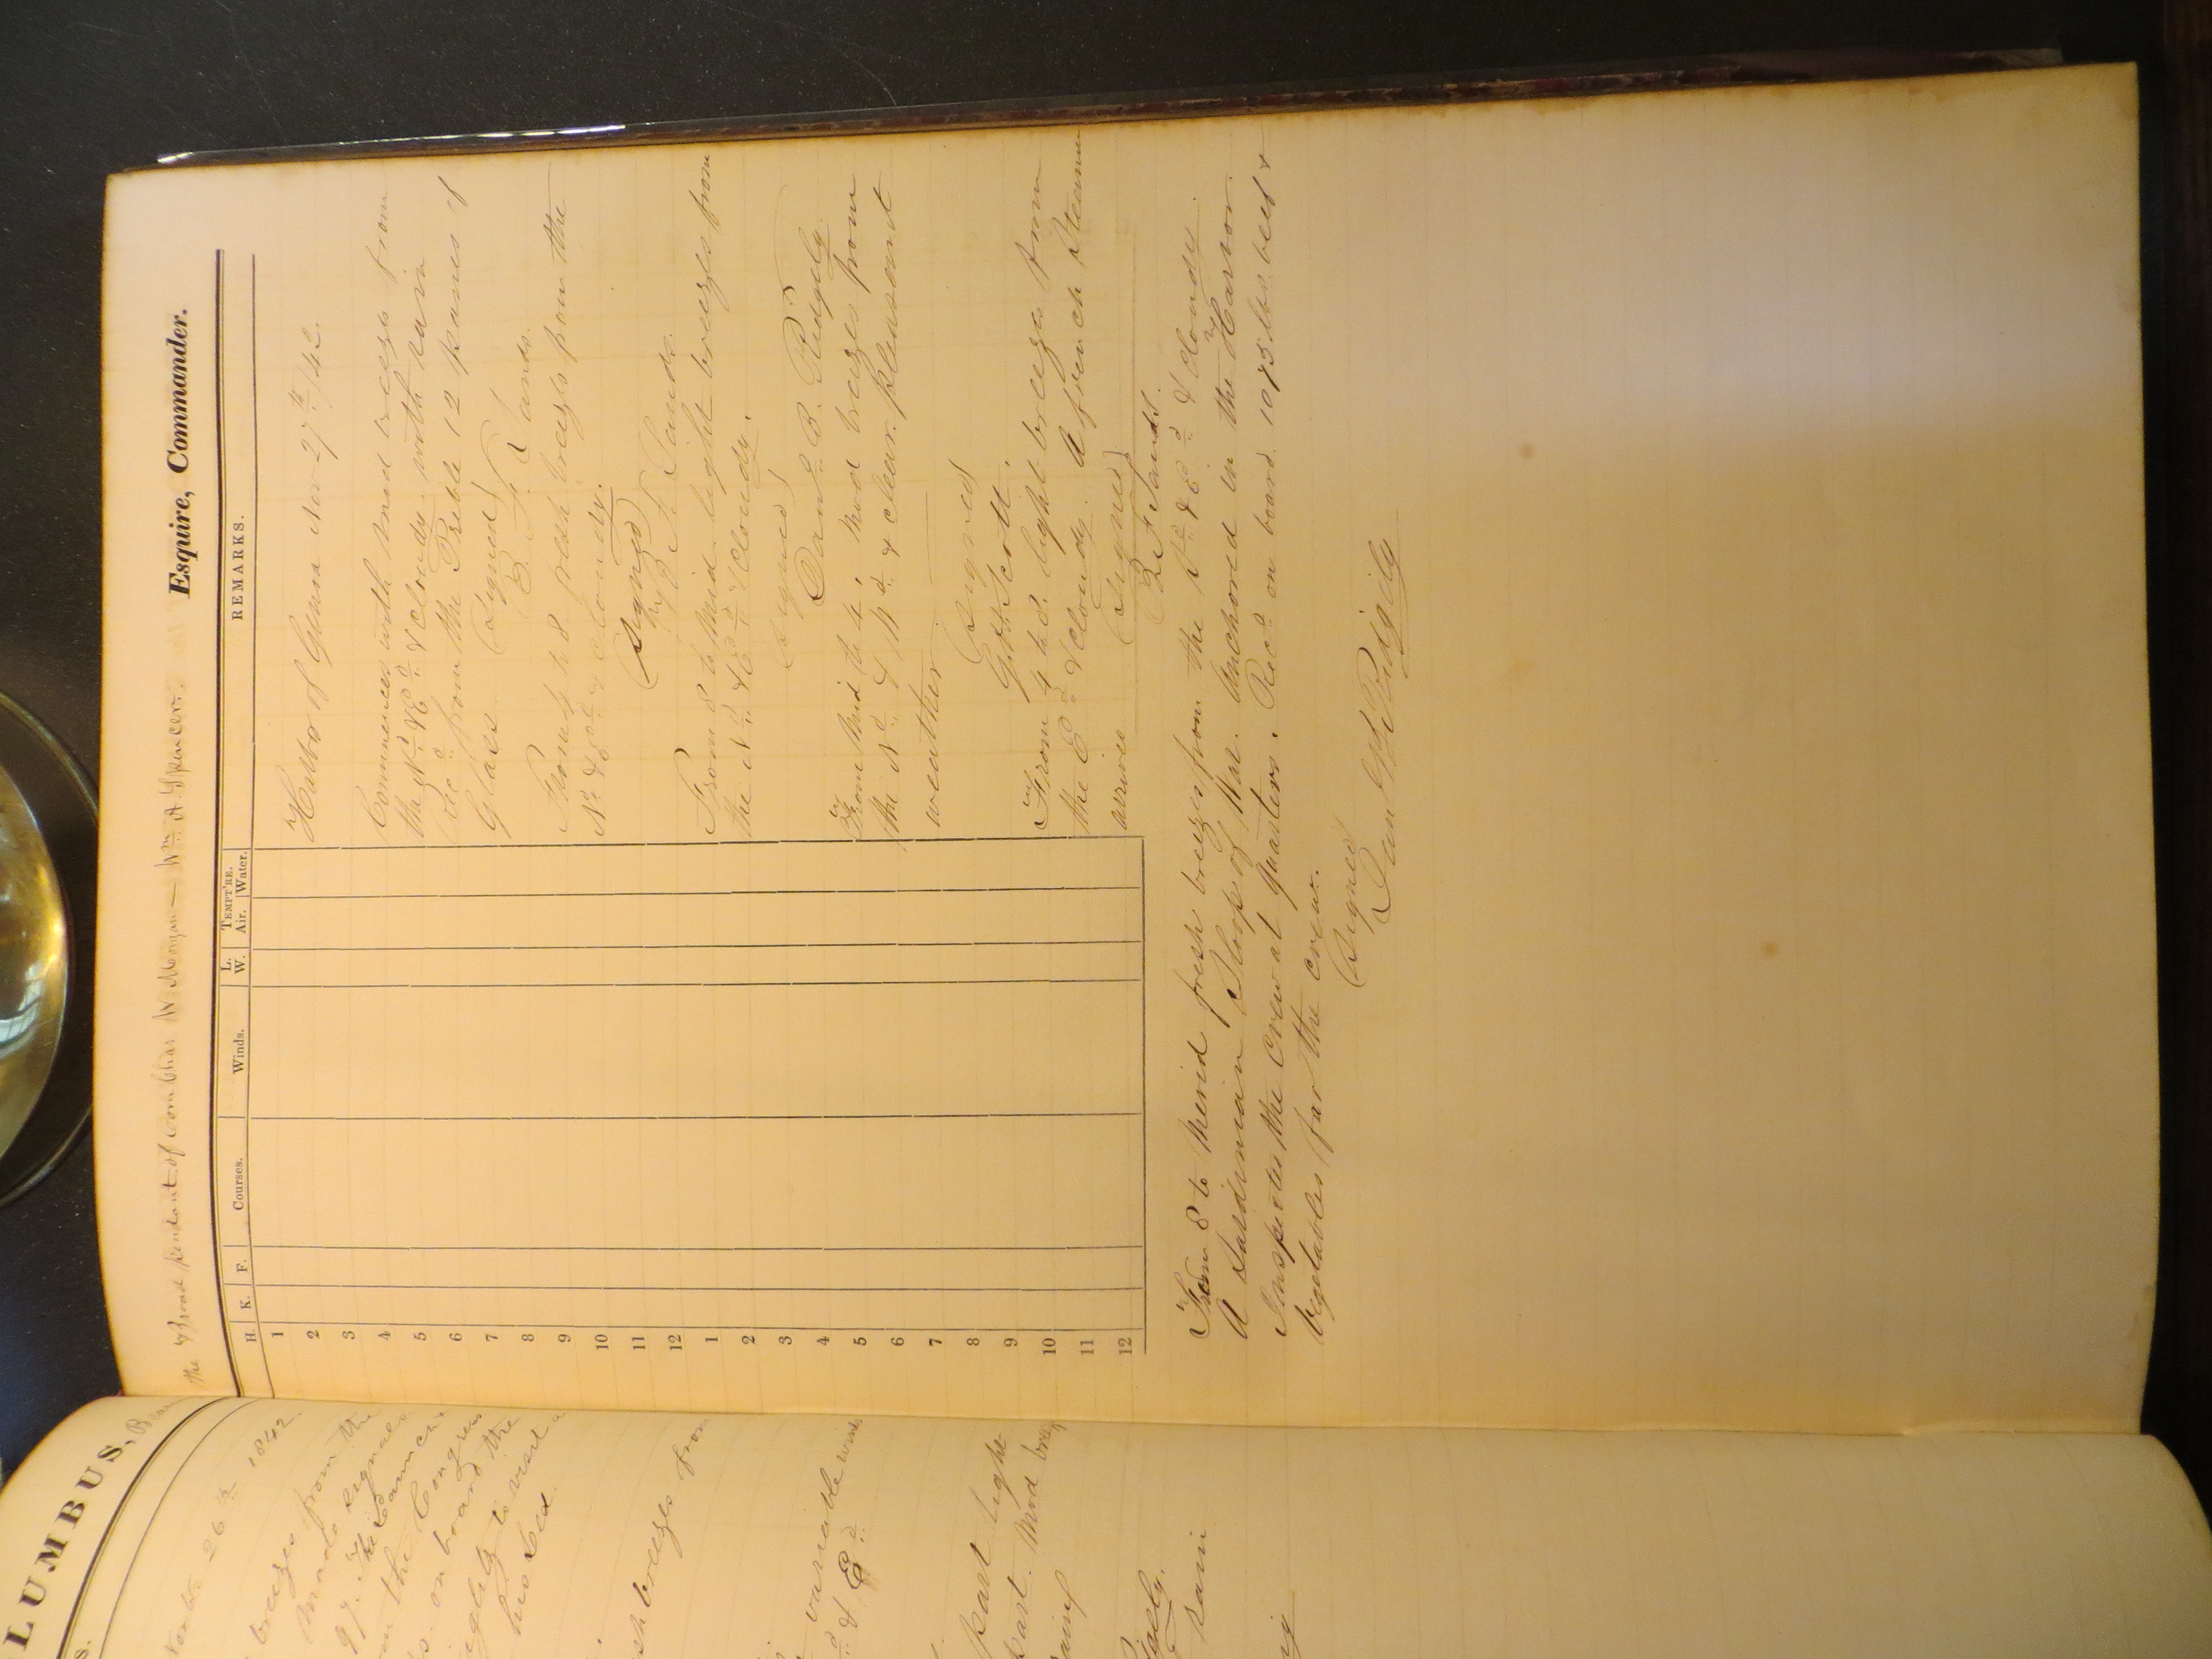 LUMBUS,
Novbr. 26th 1842
breezes from the
made signal
97. The Launch
the Congress
on board the
to visit a
his bed.
sh breezes from
variable winds
d & Ed
part light
part. Mod breez
aing
gely.
rain
the Broad Pendant of Com Chas W. Morgan — Wm A Spencer. Esquire, Commander.
H. K. F. Courses. Winds. L. W. TEMPT'RE. Air. Water. REMARKS.
1
2
3
4
5
6
7
8
9
10
11
12
1
2
3
4
5
6
7
8
9
10
11
12
Harbor of Genoa Nov 27th/42.
Commences with Mod breezes from
the Nd & Ed & Cloudy with rain
Recd from the Preble 12 panes of
Glass. (Signed)
B. F. Sands.
From 4 to 8 fresh breezes from the
Nd & Ed & cloudy.
(Signed)
B. F. Sands.
From 8 to Mid light breezes from
the Nd & Ed & Cloudy.
(Signed)
Danl. B. Ridgely
From Mid to 4, Mod breezes from
the Nd & Wd & clear pleasant
weather
(Signed
G. H. Scott.
From 4 to 8. light breezes from
the Ed & Cloudy. A french Steamer
arrived (Signed)
B F Sands.
From 8 to Merid fresh breezes from the Nd & Ed & Cloudy.
A Sardinian Sloop of War. Anchored in the Harbor.
Inspected the Crew at quarters. Recd on board 1075 lbs. beef &
vegetables for the crew.
(Signed
Dan B Ridgely